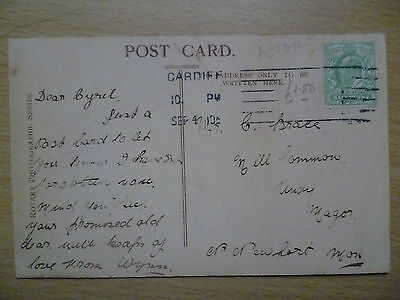 POST CARD.
ACTOR
CARDIFF
ADDRESS ONLY TO BE
WRITTEN HERE.
10 PM
SEP 4 05
1.50
ROTARY PHOTOGRAPHIC SERIES
Dear Cyril.
Just a
Post Card to let
you know I haven't
forgotten you.
Mind you
your promised old
dear, with heaps of
love from Wynn.
Mr. C. Brace
Mill Common
Undy
Magor
Nr Newport Mon